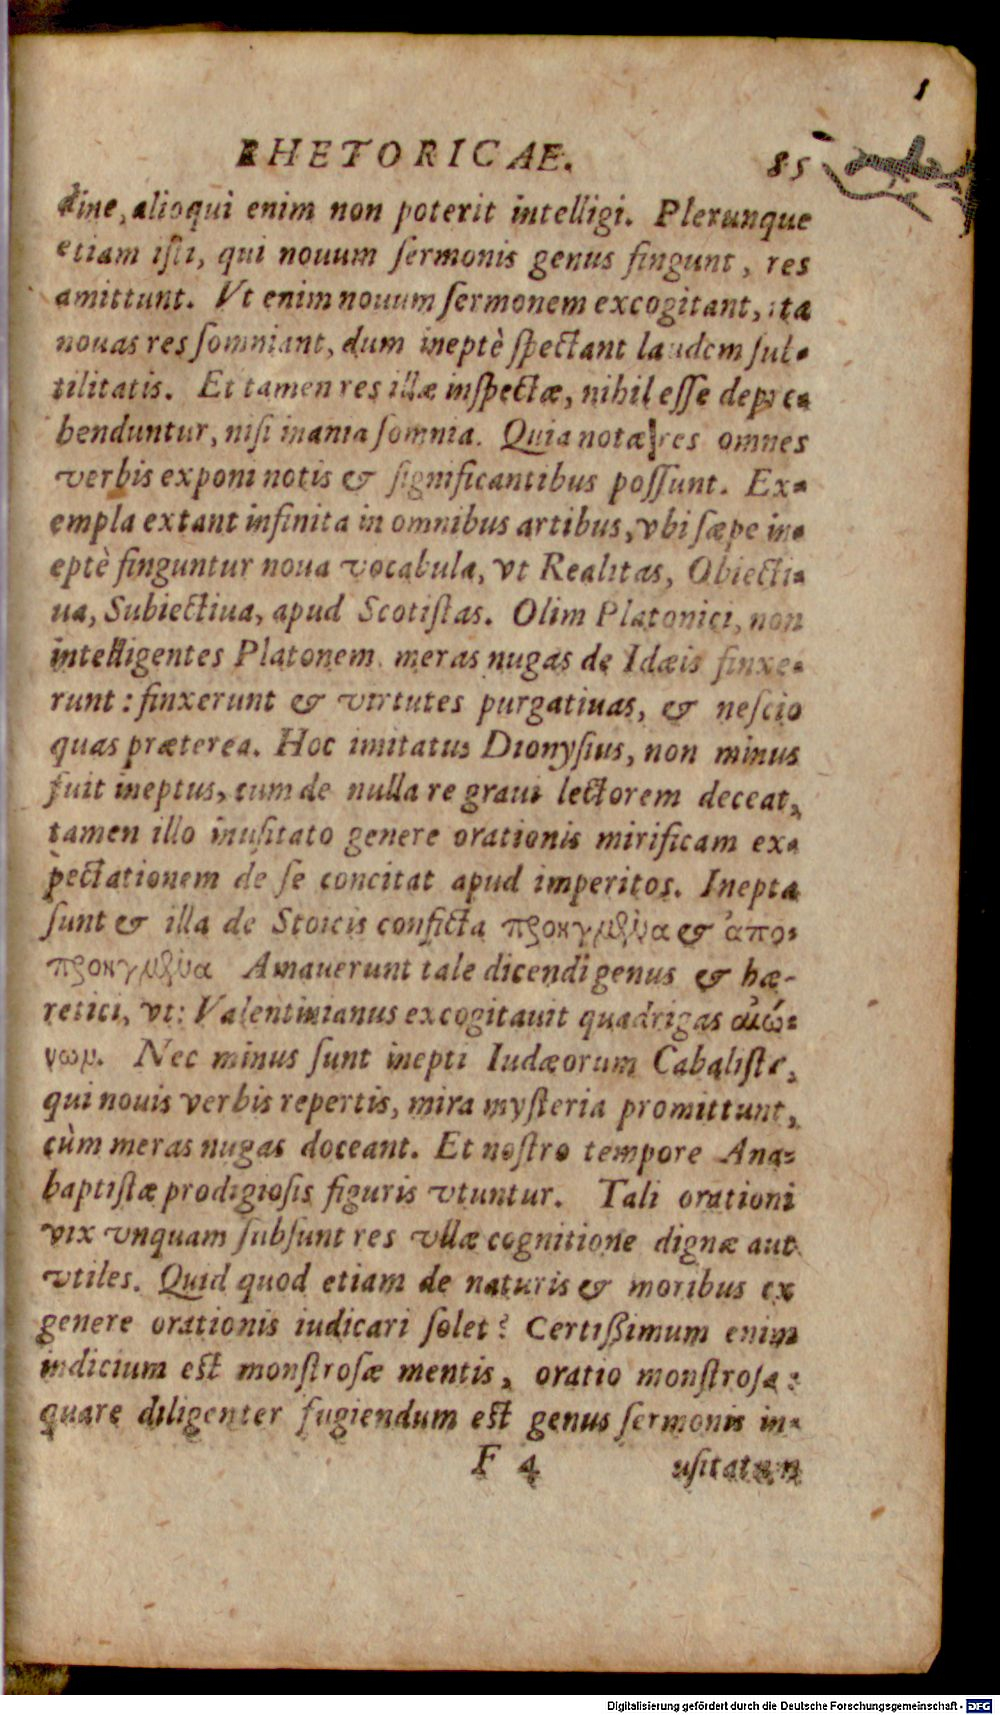 1
RHETORICAE. 85
dine, alioqui enim non poterit intelligi. Plerunque
etiam iſti, qui nouum ſermonis genus fingunt, res
amittunt. Vt enim nouum ſermonem excogitant, ita
nouas res ſomniant, dum ineptè ſpectant laudem ſub-
tilitatis. Et tamen res illæ inſpectæ, nihil eſſe depre-
henduntur, niſi inania ſomnia. Quia notæ res omnes
verbis exponi notis & ſignificantibus poſſunt. Ex-
empla extant infinita in omnibus artibus, vbi ſæpe in-
eptè finguntur noua vocabula, vt Realitas, Obiecti-
ua, Subiectiua, apud Scotiſtas. Olim Platonici, non
intelligentes Platonem meras nugas de Idæis finxe-
runt: finxerunt & virtutes purgatiuas, & neſcio
quas præterea. Hoc imitatus Dionyſius, non minus
fuit ineptus, cum de nulla re graui lectorem deceat,
tamen illo inuſitato genere orationis mirificam ex-
pectationem de ſe concitat apud imperitos. Inepta
ſunt & illa de Stoicis conficta προηγμῥύα & ἀπο-
προηγμῥύα Amauerunt tale dicendi genus & hæ-
retici, vt: Valentinianus excogitauit quadrigas αἰώ-
νωμ. Nec minus ſunt inepti Iudæorum Cabaliſte,
qui nouis verbis repertis, mira myſteria promittunt,
cùm meras nugas doceant. Et noſtro tempore Ana-
baptiſtæ prodigioſis figuris vtuntur. Tali orationi
vix vnquam ſubſunt res vllæ cognitione dignæ aut
vtiles. Quid quod etiam de naturis & moribus ex
genere orationis iudicari ſolet? Certißimum enim
indicium eſt monſtroſæ mentis, oratio monſtroſa:
quare diligenter fugiendum eſt genus ſermonis in-
F 4 uſitatum
Digitalisierung gefördert durch die Deutsche Forschungsgemeinschaft - DFG